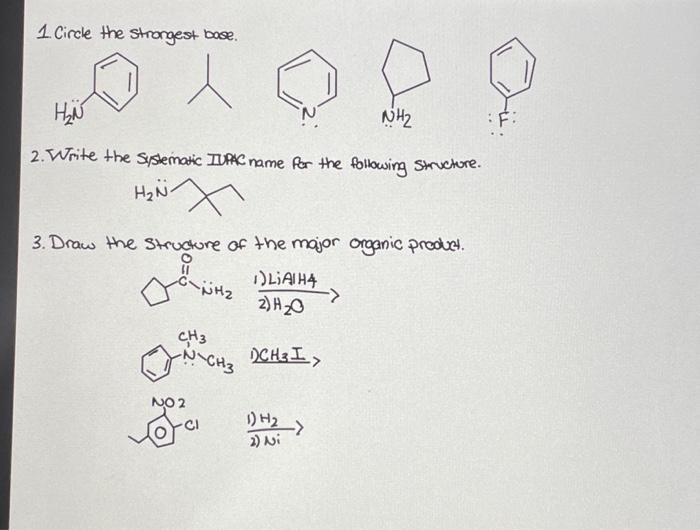 1. Circle the strongest base.
H₂N̈ N̈ N̈H₂ :F̤̈:
2. Write the Systematic IUPAC name for the following structure.
H₂N̈
3. Draw the Structure of the major organic product.
O
C N̈H₂ 1) LiAlH4
2) H₂O
CH₃
N̤ CH₃ 1) CH₃I
NO2
Cl 1) H₂
2) Ni